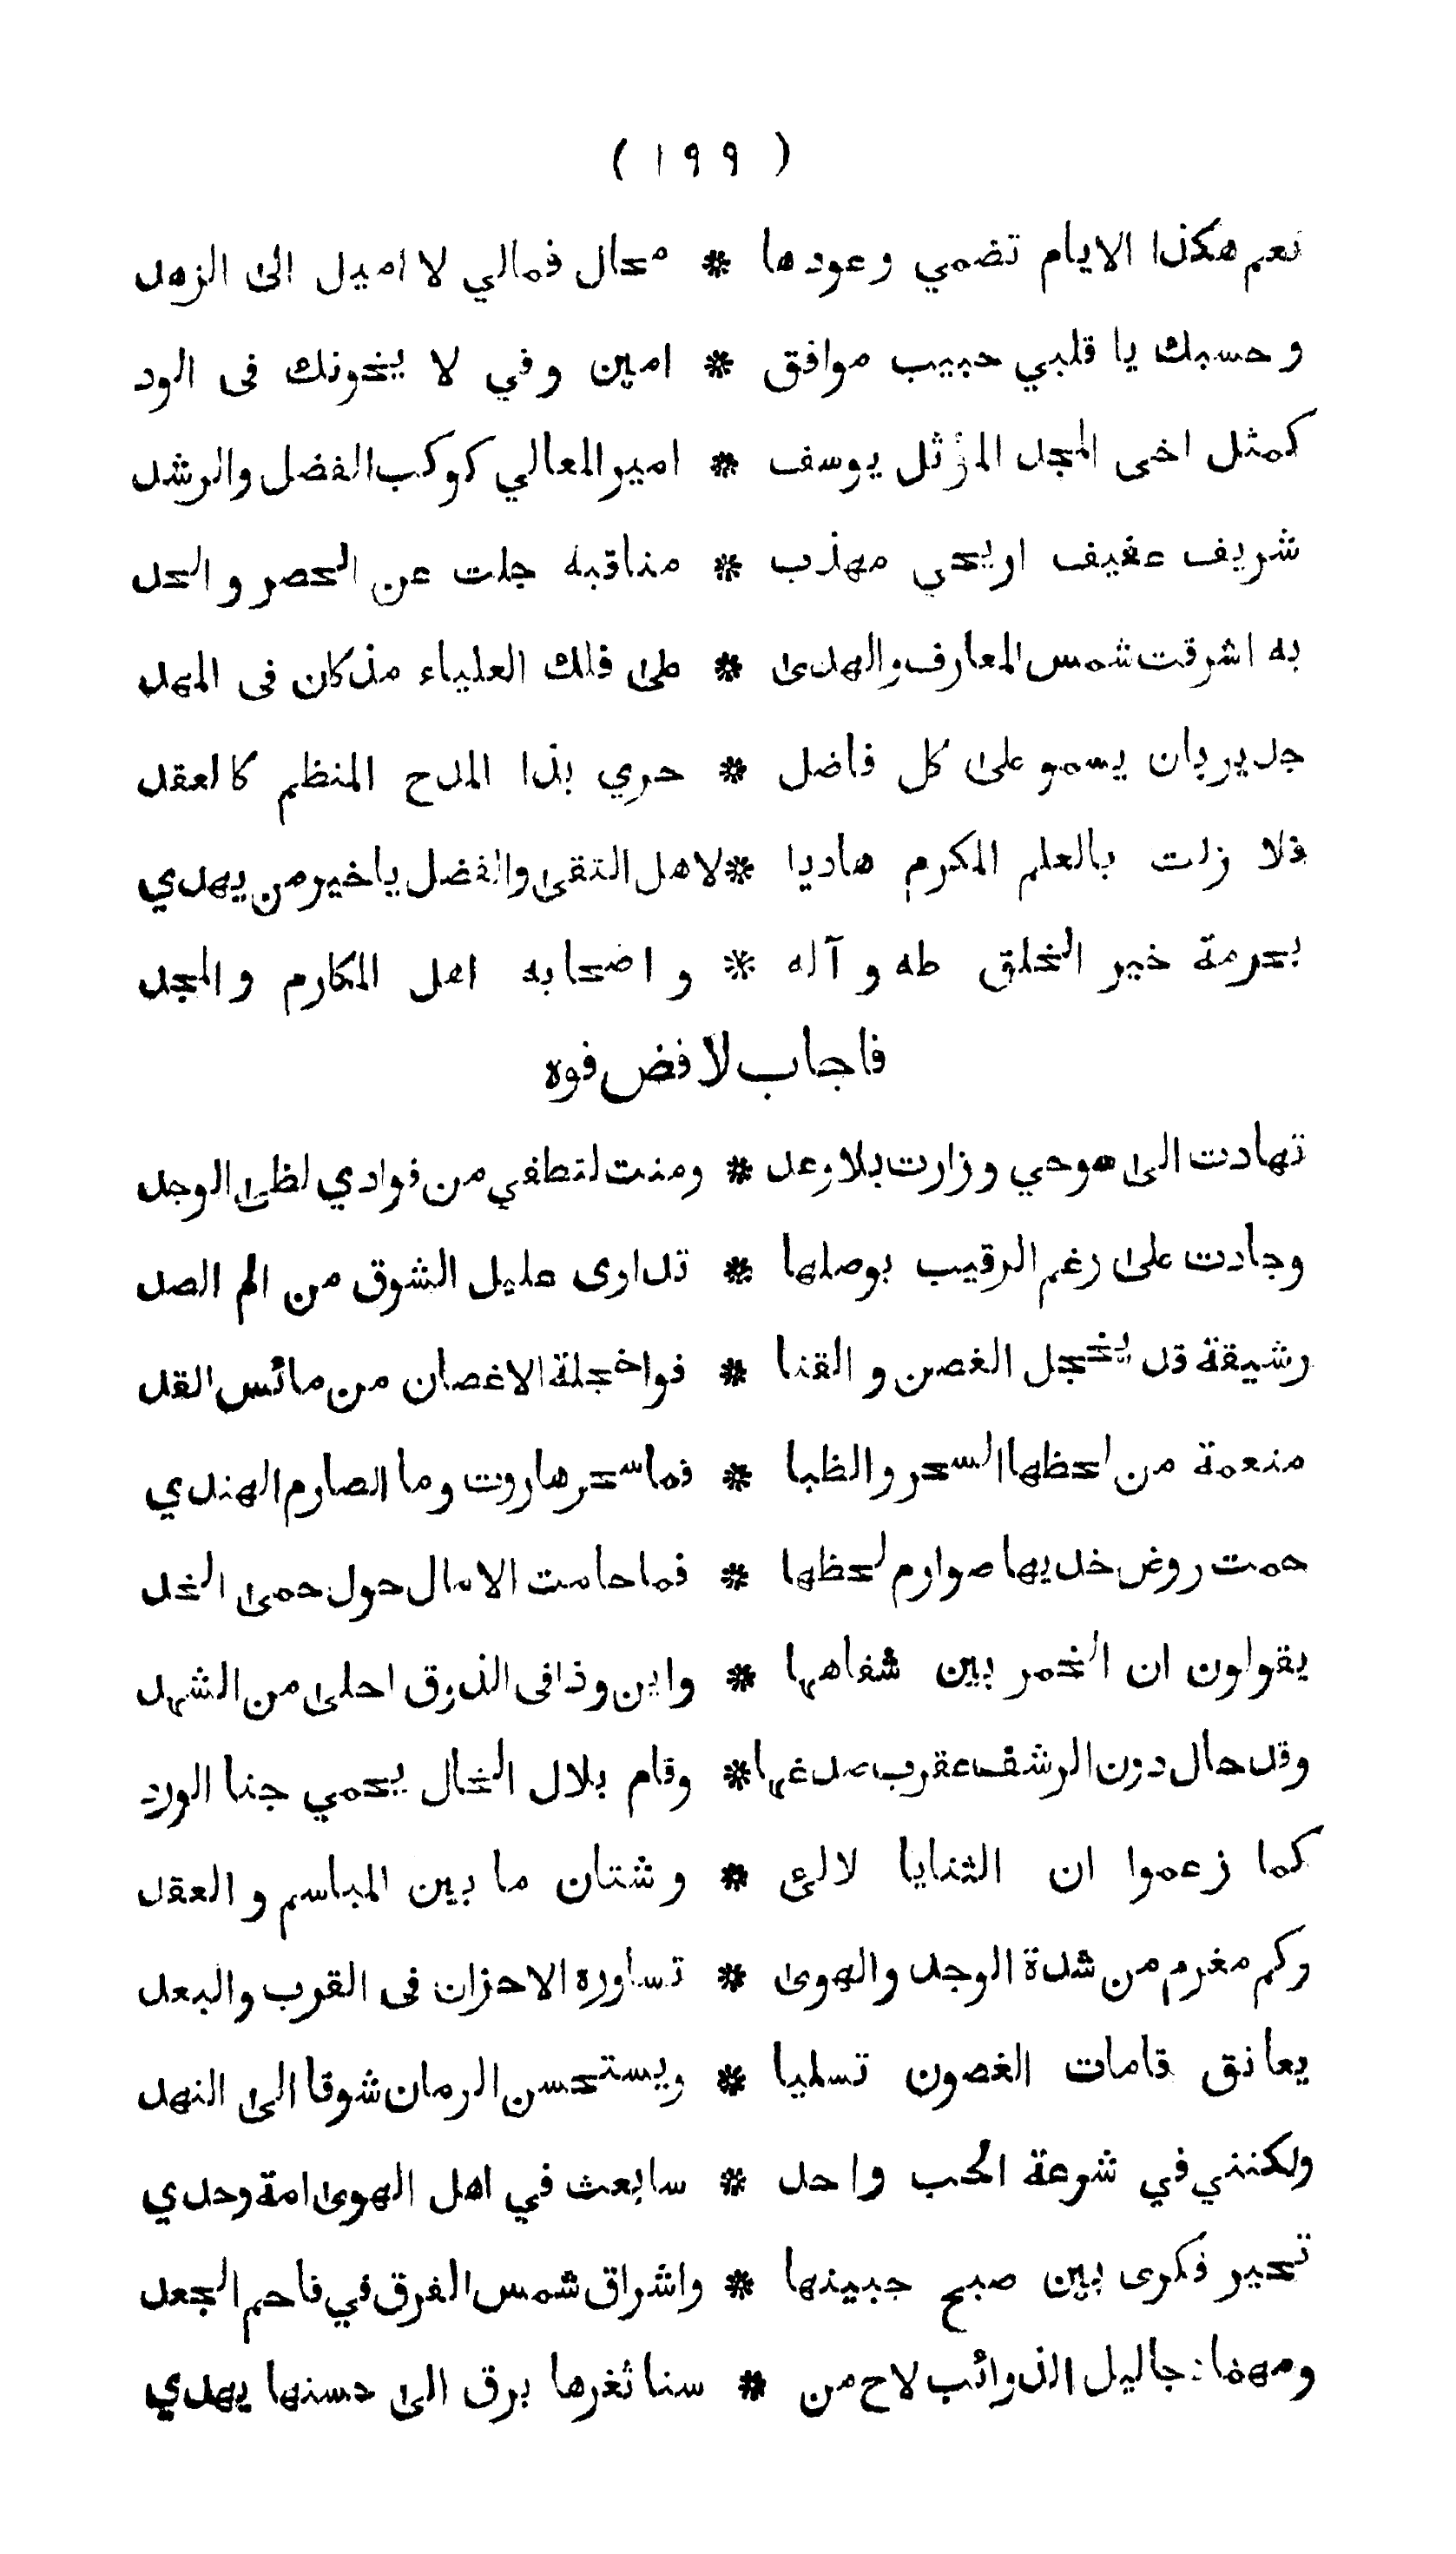 ( ١٩٩ )
نعم هكذا الايام تضمي وعودها * محال فمالي لا اميل الى الزهد
وحسبك يا قلبي حبيب موافق * امين وفي لا يخونك فى الود
كمثل اخى المجد المؤثل يوسف * امير المعالي كوكب الفضل والرشد
شريف عفيف اريحى مهذب * مناقبه جلت عن الحصر والحد
به اشرقت شمس المعارف والهدى * على فلك العلياء مذ كان فى المهد
جدير بان يسمو على كل فاضل * حري بذا المدح المنظم كالعقد
فلا زلت بالعلم المكرم هاديا * لاهل التقى والفضل يا خير من يهدي
بحرمة خير الخلق طه وآله * واصحابه اهل المكارم والمجد
فاجاب لا فض فوه
تهادت الى هوحي وزارت بلا وعد * ومنت لتطفي من فوادي لظى الوجد
وجادت على رغم الرقيب بوصلها * تداوى عليل الشوق من الم الصد
رشيقة قد يخجل الغصن والقنا * فواخجلة الاغصان من مائس القد
منعمة من لحظها السحر والظبا * فما سحر هاروت وما الصارم الهندي
حمت روض خديها صوارم لحظها * فما حامت الامال حول حمى الخد
يقولون ان الخمر بين شفاهها * واين وذا فى الذوق احلى من الشهد
وقد حال دون الرشف عقرب صدغها * وقام بلال الخال يحمي جنا الورد
كما زعموا ان الثنايا لالئ * وشتان ما بين المباسم والعقد
وكم مغرم من شدة الوجد والهوى * تساوره الاحزان فى القرب والبعد
يعانق قامات الغصون تسليا * ويستحسن الرمان شوقا الى النهد
ولكنني في شرعة الحب واحد * سابعث في اهل الهوى امة وحدي
تحير فكرى بين صبح جبينها * واشراق شمس الفرق في فاحم الجعد
ومهما دجا ليل الذوائب لاح من * سنا ثغرها برق الى حسنها يهدي